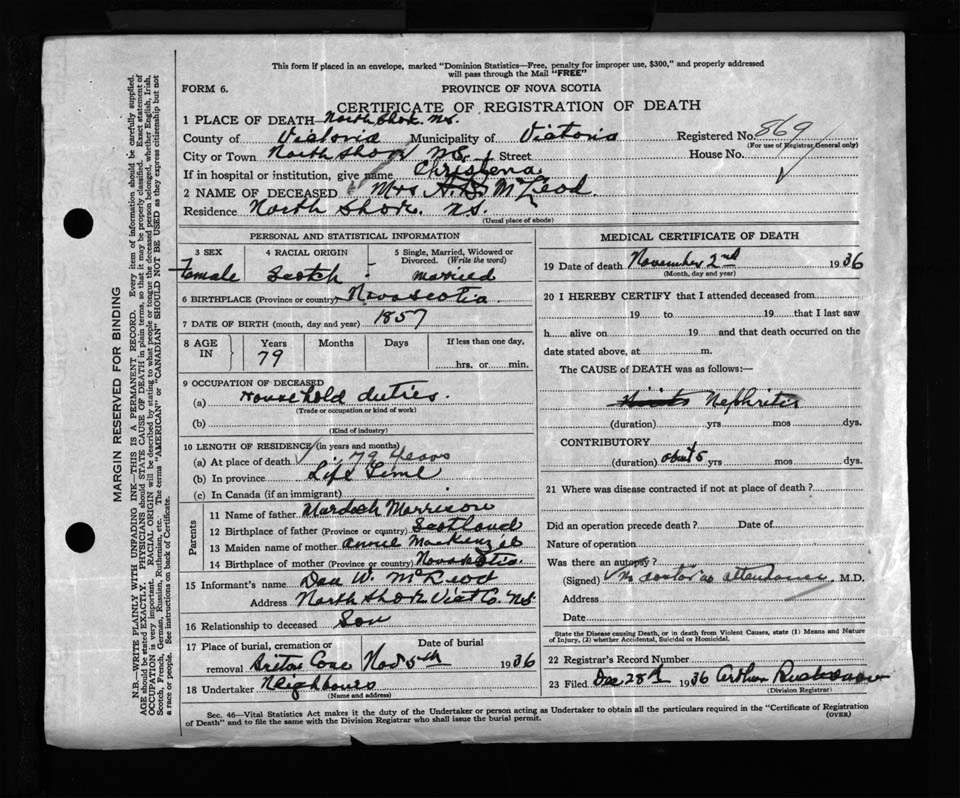 This form if placed in an envelope, marked "Dominion Statistics—Free, penalty for improper use, $300," and properly addressed
will pass through the Mail "FREE"
FORM 6.
PROVINCE OF NOVA SCOTIA
CERTIFICATE OF REGISTRATION OF DEATH
1 PLACE OF DEATH North Shore N.S.
County of Victoria Municipality of Victoria Registered No. 869
(For use of Registrar General only)
City or Town North Shore N.S. Street House No.
If in hospital or institution, give name Christena
2 NAME OF DECEASED Mrs A. D. McLeod
Residence North Shore. N.S.
(Usual place of abode)
PERSONAL AND STATISTICAL INFORMATION
3 SEX 4 RACIAL ORIGIN 5 Single, Married, Widowed or
Divorced. (Write the word)
Female Scotch married
6 BIRTHPLACE (Province or country) Nova Scotia
7 DATE OF BIRTH (month, day and year) 1857
8 AGE IN Years Months Days If less than one day,
79 hrs. or min.
9 OCCUPATION OF DECEASED
(a) Household duties.
(Trade or occupation or kind of work)
(b)
(Kind of industry)
10 LENGTH OF RESIDENCE (in years and months)
(a) At place of death 79 years
(b) In province Life Time
(c) In Canada (if an immigrant)
Parents
11 Name of father Murdoch Morrison
12 Birthplace of father (Province or country) Scotland
13 Maiden name of mother Annie MacKenzie
14 Birthplace of mother (Province or country) Nova Scotia.
15 Informant's name Dan W. McLeod
Address North Shore Vict Co. N.S.
16 Relationship to deceased Son
17 Place of burial, cremation or Date of burial
removal Briton Cove Nov 5th 1936
18 Undertaker Neighbours
(Name and address)
MEDICAL CERTIFICATE OF DEATH
19 Date of death November 2nd 1936
(Month, day and year)
20 I HEREBY CERTIFY that I attended deceased from
19 to 19 that I last saw
h alive on 19 and that death occurred on the
date stated above, at m.
The CAUSE of DEATH was as follows:—
Nephritis
(duration) yrs mos dys.
CONTRIBUTORY
(duration) about 5 yrs mos dys.
21 Where was disease contracted if not at place of death?
Did an operation precede death? Date of
Nature of operation
Was there an autopsy?
(Signed) No doctor in attendance M.D.
Address
Date
State the Disease causing Death, or in death from Violent Causes, state (1) Means and Nature
of Injury, (2) whether Accidental, Suicidal or Homicidal.
22 Registrar's Record Number
23 Filed Dec 28th 1936 Arthur
(Division Registrar)
Sec. 46—Vital Statistics Act makes it the duty of the Undertaker or person acting as Undertaker to obtain all the particulars required in the "Certificate of Registration
of Death" and to file the same with the Division Registrar who shall issue the burial permit.
(OVER)
MARGIN RESERVED FOR BINDING
N.B.—WRITE PLAINLY WITH UNFADING INK—THIS IS A PERMANENT RECORD. Every item of information should be carefully supplied.
AGE should be stated EXACTLY. PHYSICIANS should STATE CAUSE OF DEATH in plain terms, so that it may be properly classified. Exact statement of
OCCUPATION is very important. RACIAL ORIGIN will be described by stating to what people or tongue the deceased person belonged, whether English, Irish,
Scotch, French, German, Russian, Ruthenian, etc. The terms "AMERICAN" or "CANADIAN" SHOULD NOT BE USED as they express citizenship but not
a race or people. See instructions on back of Certificate.